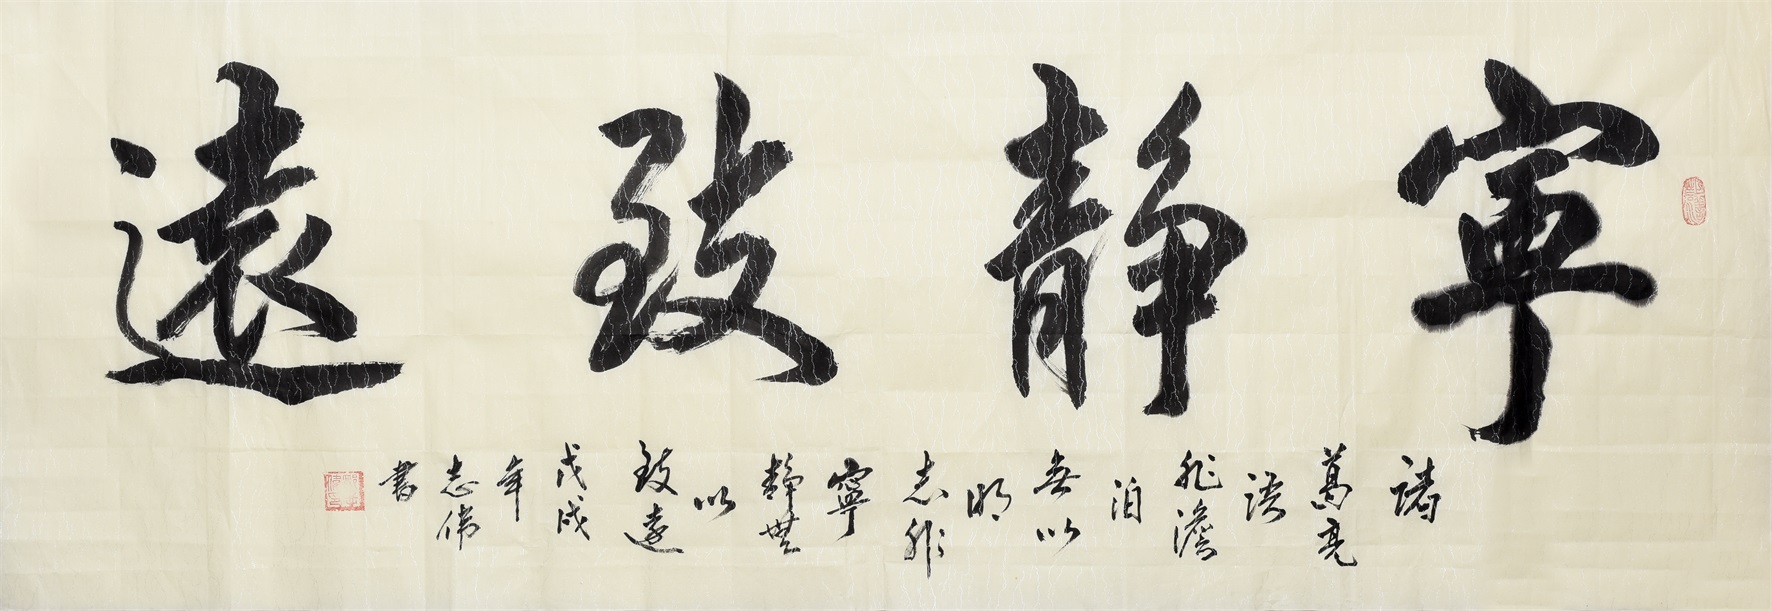 寧靜致遠
諸
葛亮
语
非澹
泊
無以
明
志非
寧
靜無
以
致遠
戊戌
年
志偉
書